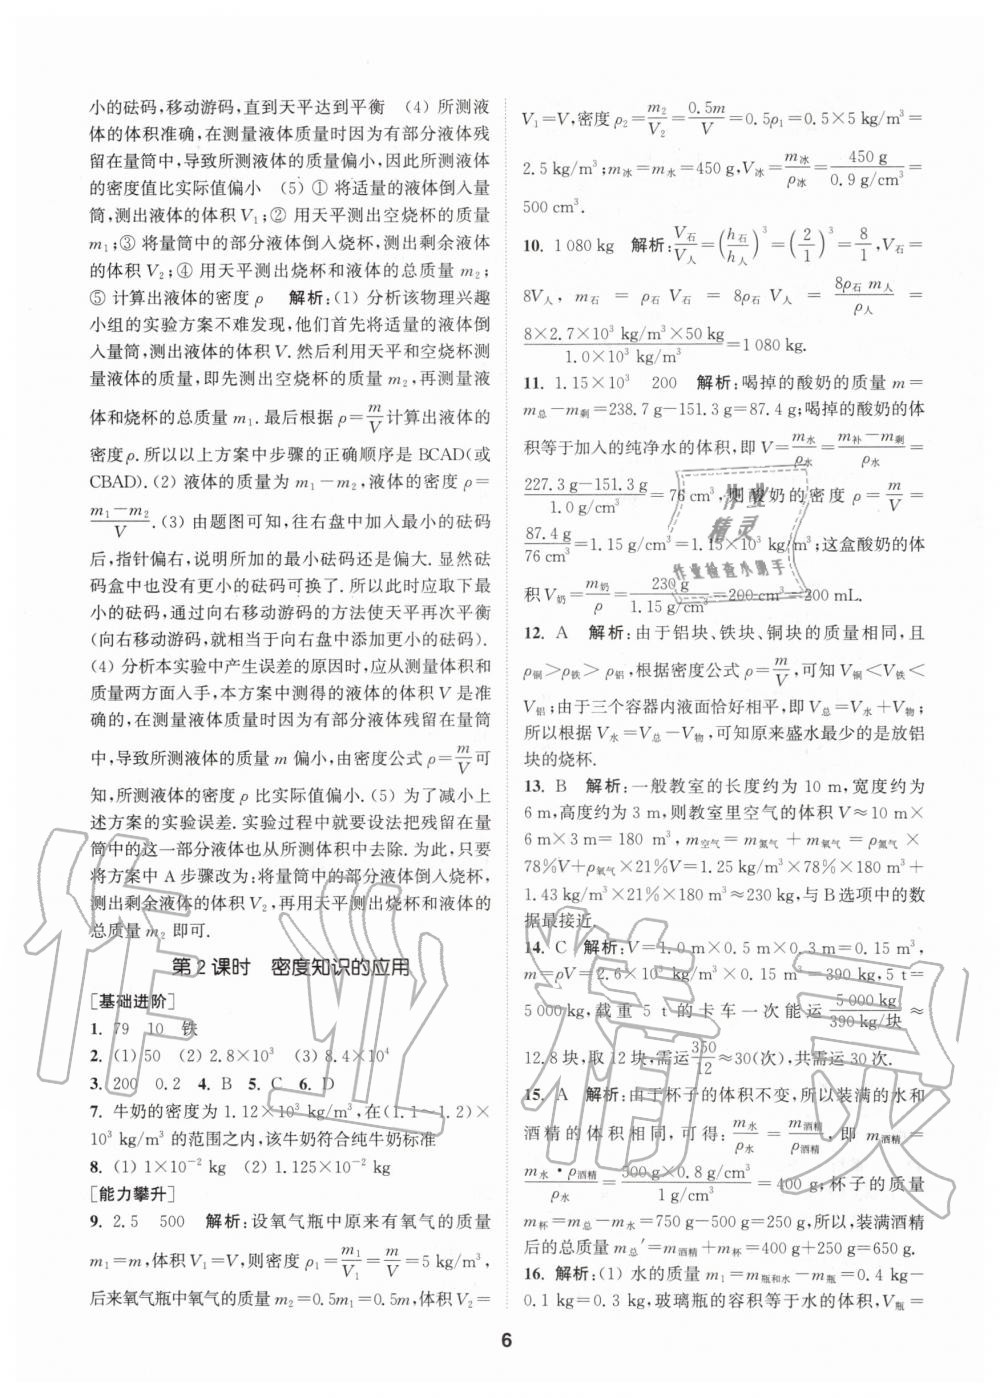 小的砝码,移动游码,直到天平达到平衡 (4) 所测液
体的体积准确,在测量液体质量时因为有部分液体残
留在量筒中,导致所测液体的质量偏小,因此所测液体
的密度值比实际值偏小 (5) ① 将适量的液体倒入量
筒,测出液体的体积 V₁;② 用天平测出空烧杯的质量
m₁;③ 将量筒中的部分液体倒入烧杯,测出剩余液体
的体积 V₂;④ 用天平测出烧杯和液体的总质量 m₂;
⑤ 计算出液体的密度 ρ 解析:(1) 分析该物理兴趣
小组的实验方案不难发现,他们首先将适量的液体倒
入量筒,测出液体的体积 V.然后利用天平和空烧杯测
量液体的质量,即先测出空烧杯的质量 m₂,再测量液
体和烧杯的总质量 m₁.最后根据 ρ=m/V计算出液体的
密度ρ.所以以上方案中步骤的正确顺序是 BCAD(或
CBAD).(2) 液体的质量为 m₁-m₂,液体的密度 ρ=
(m₁-m₂)/V.(3) 由题图可知,往右盘中加入最小的砝码
后,指针偏右,说明所加的最小砝码还是偏大.显然砝
码盒中也没有更小的砝码可换了.所以此时应取下最
小的砝码,通过向右移动游码的方法使天平再次平衡
(向右移动游码,就相当于向右盘中添加更小的砝码).
(4) 分析本实验中产生误差的原因时,应从测量体积和
质量两方面入手,本方案中测得的液体的体积 V 是准
确的,在测量液体质量时因为有部分液体残留在量筒
中,导致所测液体的质量 m 偏小,由密度公式 ρ=m/V可
知,所测液体的密度 ρ 比实际值偏小.(5) 为了减小上
述方案的实验误差.实验过程中就要设法把残留在量
筒中的这一部分液体也从所测体积中去除.为此,只要
将方案中 A 步骤改为:将量筒中的部分液体倒入烧杯,
测出剩余液体的体积 V₂,再用天平测出烧杯和液体的
总质量 m₂ 即可.
第 2 课时 密度知识的应用
[基础进阶]
1. 79 10 铁
2. (1) 50 (2) 2.8×10³ (3) 8.4×10⁴
3. 200 0.2 4. B 5. C 6. D
7. 牛奶的密度为 1.12×10³ kg/m³,在(1.1~1.2)×
10³ kg/m³ 的范围之内,该牛奶符合纯牛奶标准
8. (1) 1×10⁻² kg (2) 1.125×10⁻² kg
[能力攀升]
9. 2.5 500 解析:设氧气瓶中原来有氧气的质量
m₁=m,体积 V₁=V,则密度 ρ₁=m₁/V₁=m/V=5 kg/m³,
后来氧气瓶中氧气的质量 m₂=0.5m₁=0.5m,体积 V₂=
V₁=V,密度 ρ₂=m₂/V₂=0.5m/V=0.5ρ₁=0.5×5 kg/m³=
2.5 kg/m³;m冰=m水=450 g,V冰=m冰/ρ冰=450 g/0.9 g/cm³=
500 cm³.
10. 1 080 kg 解析:V石/V人=(h石/h人)³=(2/1)³=8/1,V石=
8V人, m石 = ρ石 V石 = 8ρ石 V人 = 8ρ石 m人/ρ人 =
8×2.7×10³ kg/m³×50 kg/1.0×10³ kg/m³=1 080 kg.
11. 1.15×10³ 200 解析:喝掉的酸奶的质量 m=
m总-m剩=238.7 g-151.3 g=87.4 g;喝掉的酸奶的体
积等于加入的纯净水的体积,即 V=m水/ρ水=(m补-m剩)/ρ水=
(227.3 g-151.3 g)/1.0 g/cm³=76 cm³,则酸奶的密度 ρ=m/V=
87.4 g/76 cm³=1.15 g/cm³=1.15×10³ kg/m³;这盒酸奶的体
积 V奶=m奶/ρ=230 g/1.15 g/cm³=200 cm³=200 mL.
12. A 解析:由于铝块、铁块、铜块的质量相同,且
ρ铜>ρ铁>ρ铝,根据密度公式 ρ=m/V,可知 V铜<V铁<
V铝;由于三个容器内液面恰好相平,即 V总=V水+V物;
所以根据 V水=V总-V物,可知原来盛水最少的是放铝
块的烧杯.
13. B 解析:一般教室的长度约为 10 m,宽度约为
6 m,高度约为 3 m,则教室里空气的体积 V≈10 m×
6 m×3 m=180 m³,m空气=m氮气+m氧气=ρ氮气×
78%V+ρ氧气×21%V=1.25 kg/m³×78%×180 m³+
1.43 kg/m³×21%×180 m³≈230 kg,与 B选项中的数
据最接近.
14. C 解析:V=1.0 m×0.5 m×0.3 m=0.15 m³,
m=ρV=2.6×10³ kg/m³×0.15 m³=390 kg,5 t=
5 000 kg,载重 5 t 的卡车一次能运 5 000 kg/390 kg/块≈
12.8 块,取 12 块,需运350/12≈30(次),共需运 30 次.
15. A 解析:由于杯子的体积不变,所以装满的水和
酒精的体积相同,可得:m水/ρ水=m酒精/ρ酒精,即 m酒精=
m水·ρ酒精/ρ水=500 g×0.8 g/cm³/1 g/cm³=400 g;杯子的质量
m杯=m总-m水=750 g-500 g=250 g,所以,装满酒精
后的总质量 m总′=m酒精+m杯=400 g+250 g=650 g.
16. 解析:(1) 水的质量 m₁=m瓶和水-m瓶=0.4 kg-
0.1 kg=0.3 kg,玻璃瓶的容积等于水的体积,V瓶=
6
作业
精灵
作业检查小助手
作业精灵